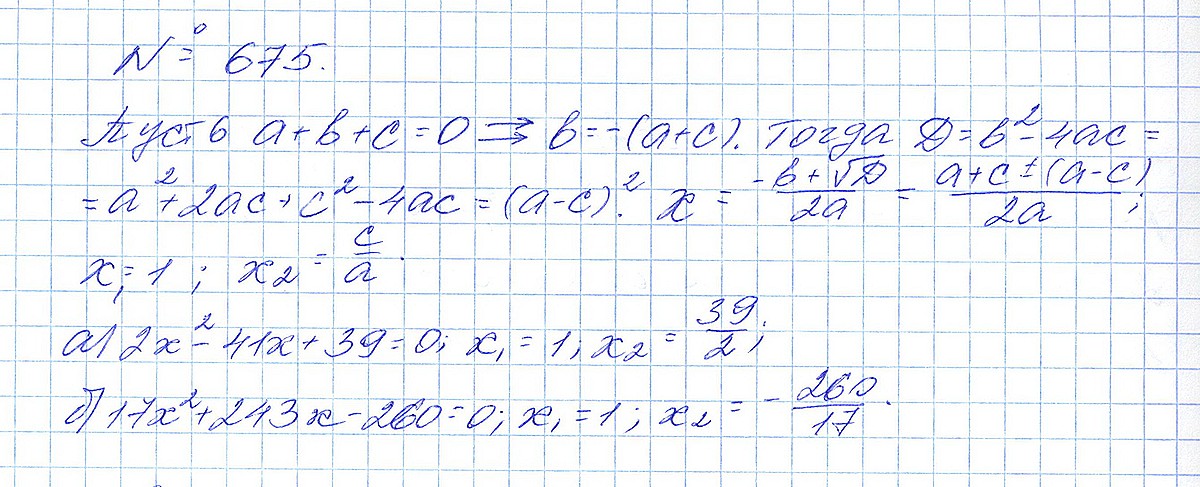 № 675.
Пусть a+b+c=0 ⇒ b=-(a+c). Тогда D=b²-4ac=
=a²+2ac+c²-4ac=(a-c)². x = (-b+√D)/2a = (a+c±(a-c))/2a;
x₁=1; x₂=c/a.
а) 2x²-41x+39=0; x₁=1; x₂=39/2;
б) 17x²+243x-260=0; x₁=1; x₂=-260/17.